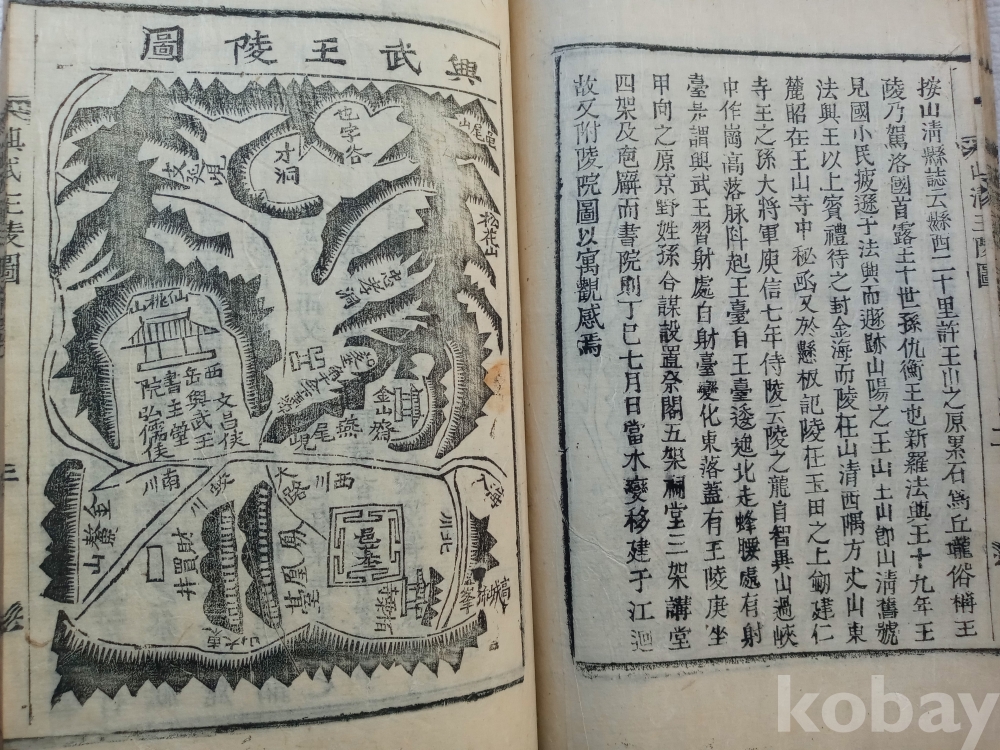 按山清縣誌云縣西二十里許王山之原累石爲丘壠俗稱王
陵乃駕洛國首露王十世孫仇衡王也新羅法興王十九年王
見國小民疲遜于法興而遯跡山陽之王山王山卽山清舊號
法興王以上賓禮待之封金海而陵在山清西隅方丈山東
麓昭在王山寺中秘函又於縣板記陵在玉田之上劒建仁
寺王之孫大將軍庾信七年侍陵云陵之龍自智異山過峽
中作崗高落脉阧起王臺自王臺逶迤北走蜂腰處有射
臺是謂興武王習射處自射臺變化東落蓋有王陵庚坐
甲向之原京野姓孫合謀設置祭閣五架祠堂三架講堂
四架及庖廨而書院則丁巳七月日當水變移建于江洄
故又附陵院圖以寓觀感焉
興武王陵圖
也字谷
才洞
松花山
忠孝洞
仙桃山
西岳書院
興武王
主壁
文昌侯
弘儒侯
金山齋
燕尾峴
南川
西川
大路
北川
入海
金鰲山
財買井
鳳凰臺
邑基
興武王陵圖